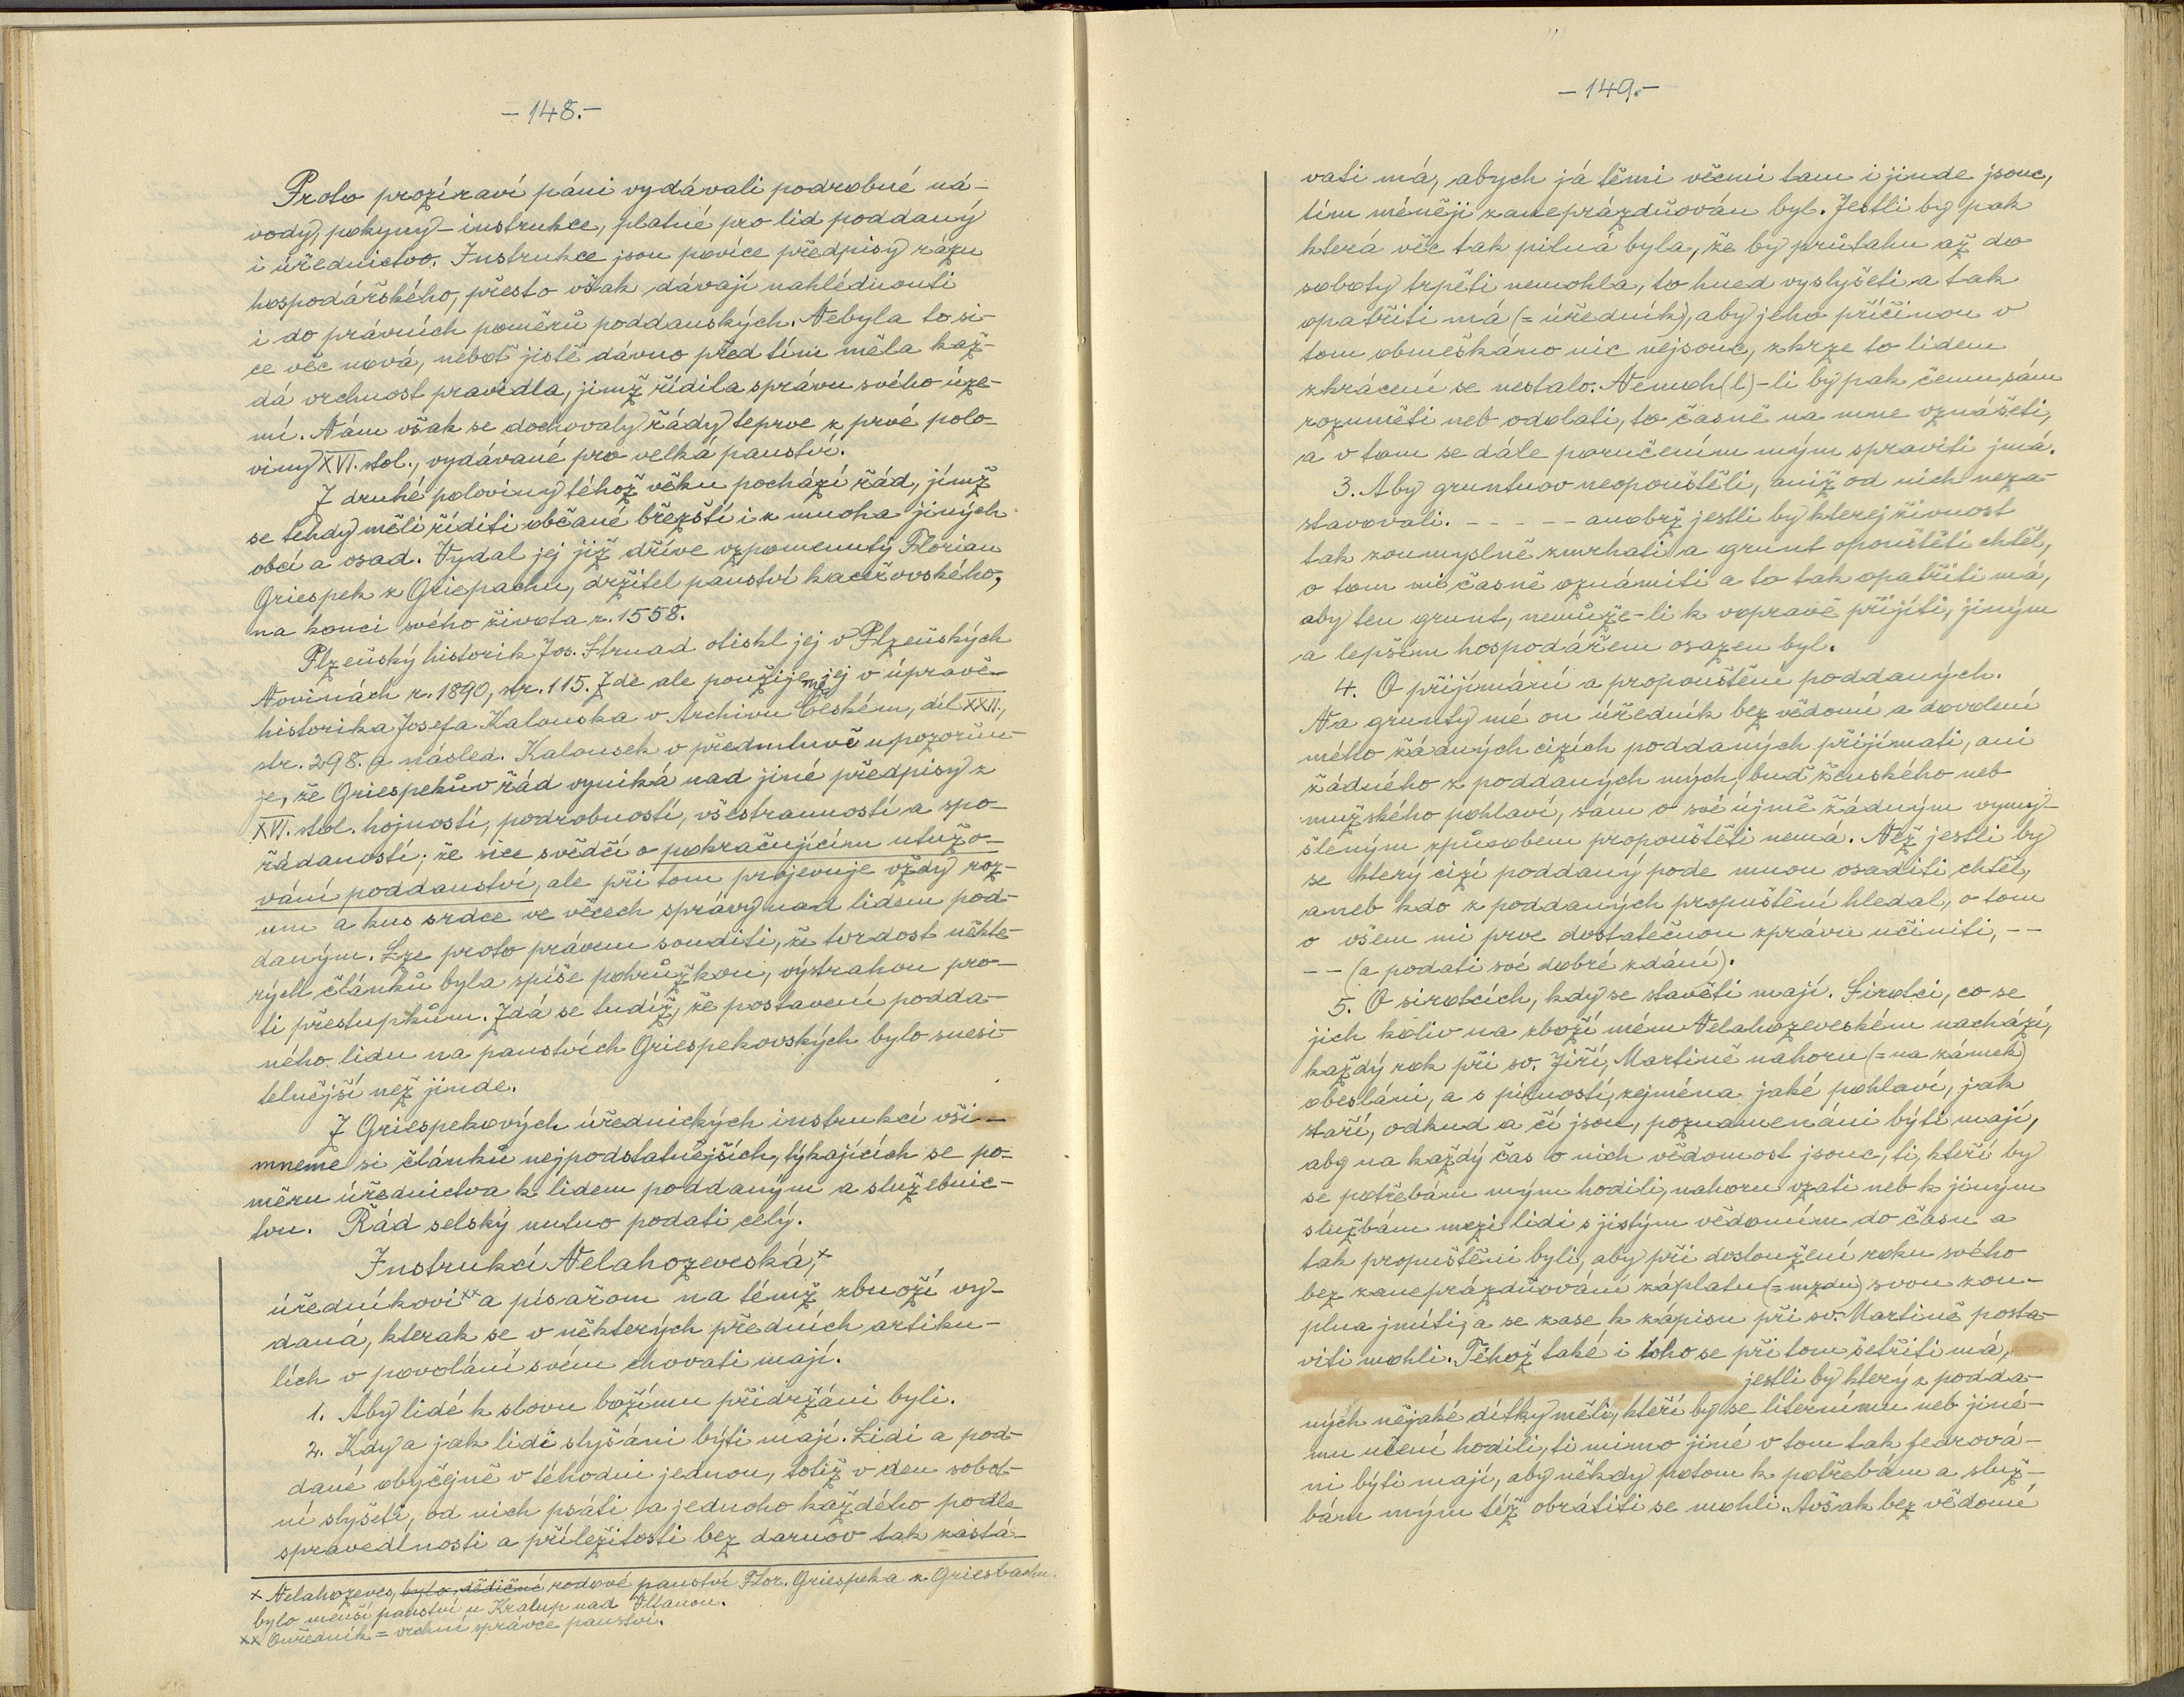 – 148. –
Proto prozíraví páni vydávali podrobné ná-
vody, pokyny – instrukce, platné pro lid poddaný
i úřednictvo. Instrukce jsou povíce předpisy rázu
hospodářského, přesto však dávají nahlédnouti
i do právních poměrů poddanských. Nebyla to si-
ce věc nová, neboť jistě dávno před tím měla kaž-
dá vrchnost pravidla, jimž řídila správu svého úze-
mí. Nám však se dochovaly řády teprve z prvé polo-
viny XVI. stol., vydávané pro velká panství.
Z druhé poloviny téhož věku pochází řád, jímž
se tehdy měli říditi občané břežští i z mnoha jiných
obcí a osad. Vydal jej již dříve vzpomenutý Florian
Griespek z Griepachu, držitel panství kaceřovského,
na konci svého života r. 1558.
Plzeňský historik Jos. Strnad otiskl jej v Plzeňských
Novinách r. 1890, nr. 115. Zde ale použijeme jej v úpravě
historika Josefa Kalouska v Archivu Českém, díl XXII.,
str. 298. a násled. Kalousek v předmluvě upozorňu-
je, že Griespekův řád vyniká nad jiné předpisy z
XVI. stol. hojností, podrobností, všestranností a spo-
řádaností; že sice svědčí o pokračujícím utužo-
vání poddanství, ale při tom projevuje vždy roz-
um a kus srdce ve věcech správy nad lidem pod-
daným. Lze proto právem souditi, že tvrdost někte-
rých článků byla spíše pohrůžkou, výstrahou pro-
ti přestupkům. Zdá se tudíž, že postavení podda-
ného lidu na panstvích Griespekovských bylo snesi-
telnější než jinde.
Z Griespekových úřednických instrukcí vši-
mneme si článků nejpodstatnějších, týkajících se po-
měru úřednictva k lidem poddaným a služebnic-
tvu. Řád selský nutno podati celý.
Instrukcí Nelahozevská,×
úředníkovi×× a písařom na témž zbuoží vy-
daná, kterak se v některých předních artiku-
lích v povolání svém chovati mají.
1. Aby lidé k slovu božímu přidržáni byli.
2. Kdy a jak lidi slyšáni býti mají. Lidi a pod-
dané obyčejně v téhodni jednou, totiž v den sobot-
ní slyšeti, od nich psáti a jednoho každého podle
spravedlnosti a příležitosti bez daruov tak zastá-
× Nelahozeves, bylo dědičné rodové panství Flor. Griespeka z Griesbachu.
bylo menší panství u Kralup nad Vltavou.
×× Ouředník = vrchní správce panství.
– 149. –
vati má, abych já těmi věcmi tam i jinde jsouc,
tím méněji zaneprázdňován byl. Jestli by pak
která věc tak pilná byla, že by průtahu až do
soboty trpěti nemohla, to hned vyslyšeti a tak
opatřiti má (= úředník), aby jeho příčinou v
tom obmeškáno nic nejsouc, zkrze to lidem
zkrácení se nestalo. Nemoh(l)-li by pak čemu sám
rozuměti neb odolati, to časně na mne vznášeti,
a v tom se dále poručením mým spraviti jmá.
3. Aby gruntuov neopouštěli, aniž od nich neza-
stavovali. - - - - - anobrž jestli by kterej živnost
tak zoumyslně zmrhati a grunt opouštěti chtěl,
o tom mě časně oznámiti a to tak opatřiti má,
aby ten grunt, nemůže-li k vopravě přijíti, jiným
a lepším hospodářem osazen byl.
4. O přijímání a propouštění poddaných.
Na grunty mé on úředník bez vědomí a dovolení
mého žádných cizích poddaných přijímati, ani
žádného z poddaných mých, buď ženského neb
mužského pohlaví, sám o své újmě žádným vymyš-
šleným způsobem propouštěti nemá. Než jestli by
se který cizí poddaný pode mnou osaditi chtěl,
aneb kdo z poddaných propuštění hledal, o tom
o všem mi prve dostatečnou zprávu učiniti, - -
- - (a podati své dobré zdání).
5. O sirotcích, kdy se stavěti mají. Sirotci, co se
jich koliv na zboží mém Nelahozeveském nachází,
každý rok při sv. Jiří, Martině nahoru (= na zámek)
obesláni, a s pilností, zejména jaké pohlaví, jak
staří, odkud a čí jsou, poznamenáni býti mají,
aby na každý čas o nich vědomost jsouc, ti, kteří by
se potřebám mým hodili, nahoru vzati neb k jiným
službám mezi lidi s jistým vědomím do času a
tak propuštěni byli, aby při dosloužení roku svého
bez zaneprázdňování záplatu (= mzdu) svou zou-
plna jmíti, a se zase k zápisu při sv. Martině posta-
viti mohli. Téhož také i toho se při tom šetřiti má,
jestli by který z podda-
ných nějaké dítky měli, kteří by se liternímu neb jiné-
mu učení hodili, ti mimo jiné v tom tak fedrová-
ni býti mají, aby někdy potom k potřebám a služ-
bám mým též obrátiti se mohli. Avšak bez vědomé